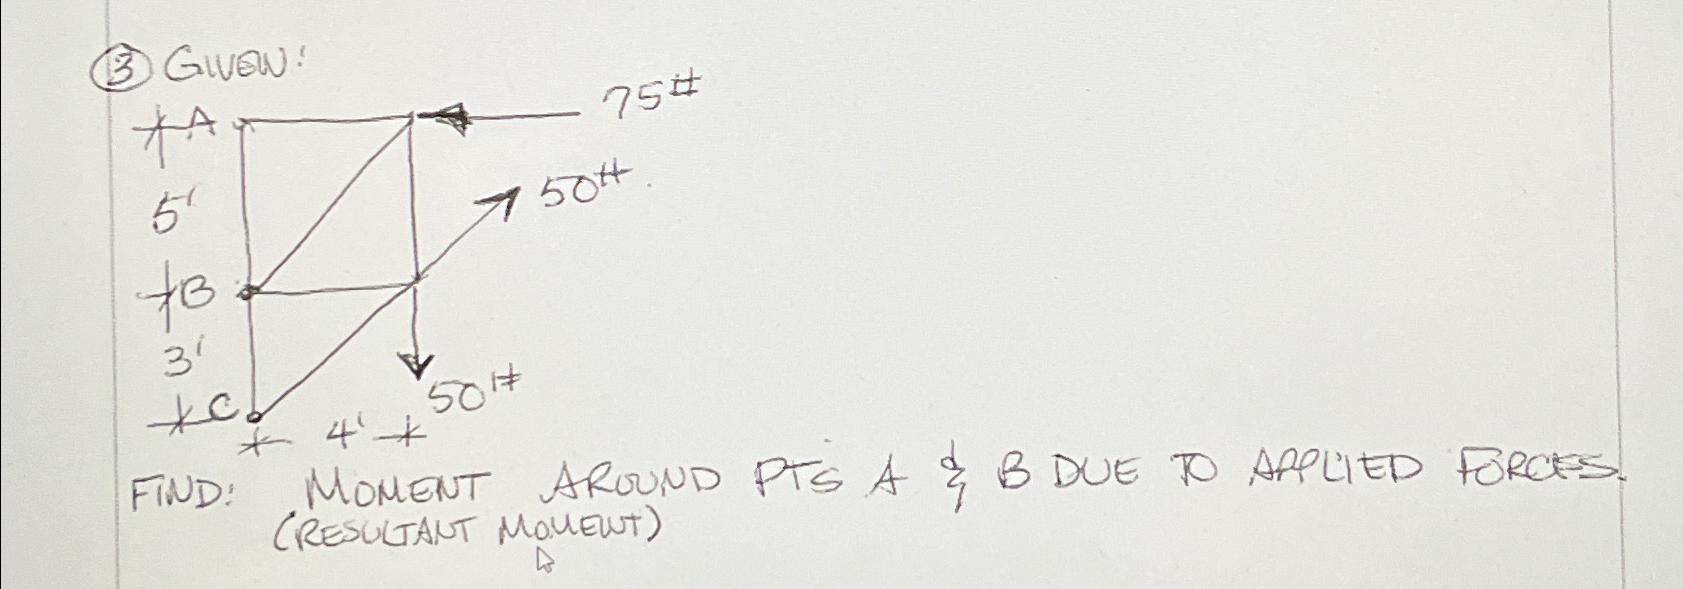 3 GIVEN:
A
75#
5'
50#
B
3'
C
50#
4'
FIND: MOMENT AROUND PTS A & B DUE TO APPLIED FORCES.
(RESULTANT MOMENT)